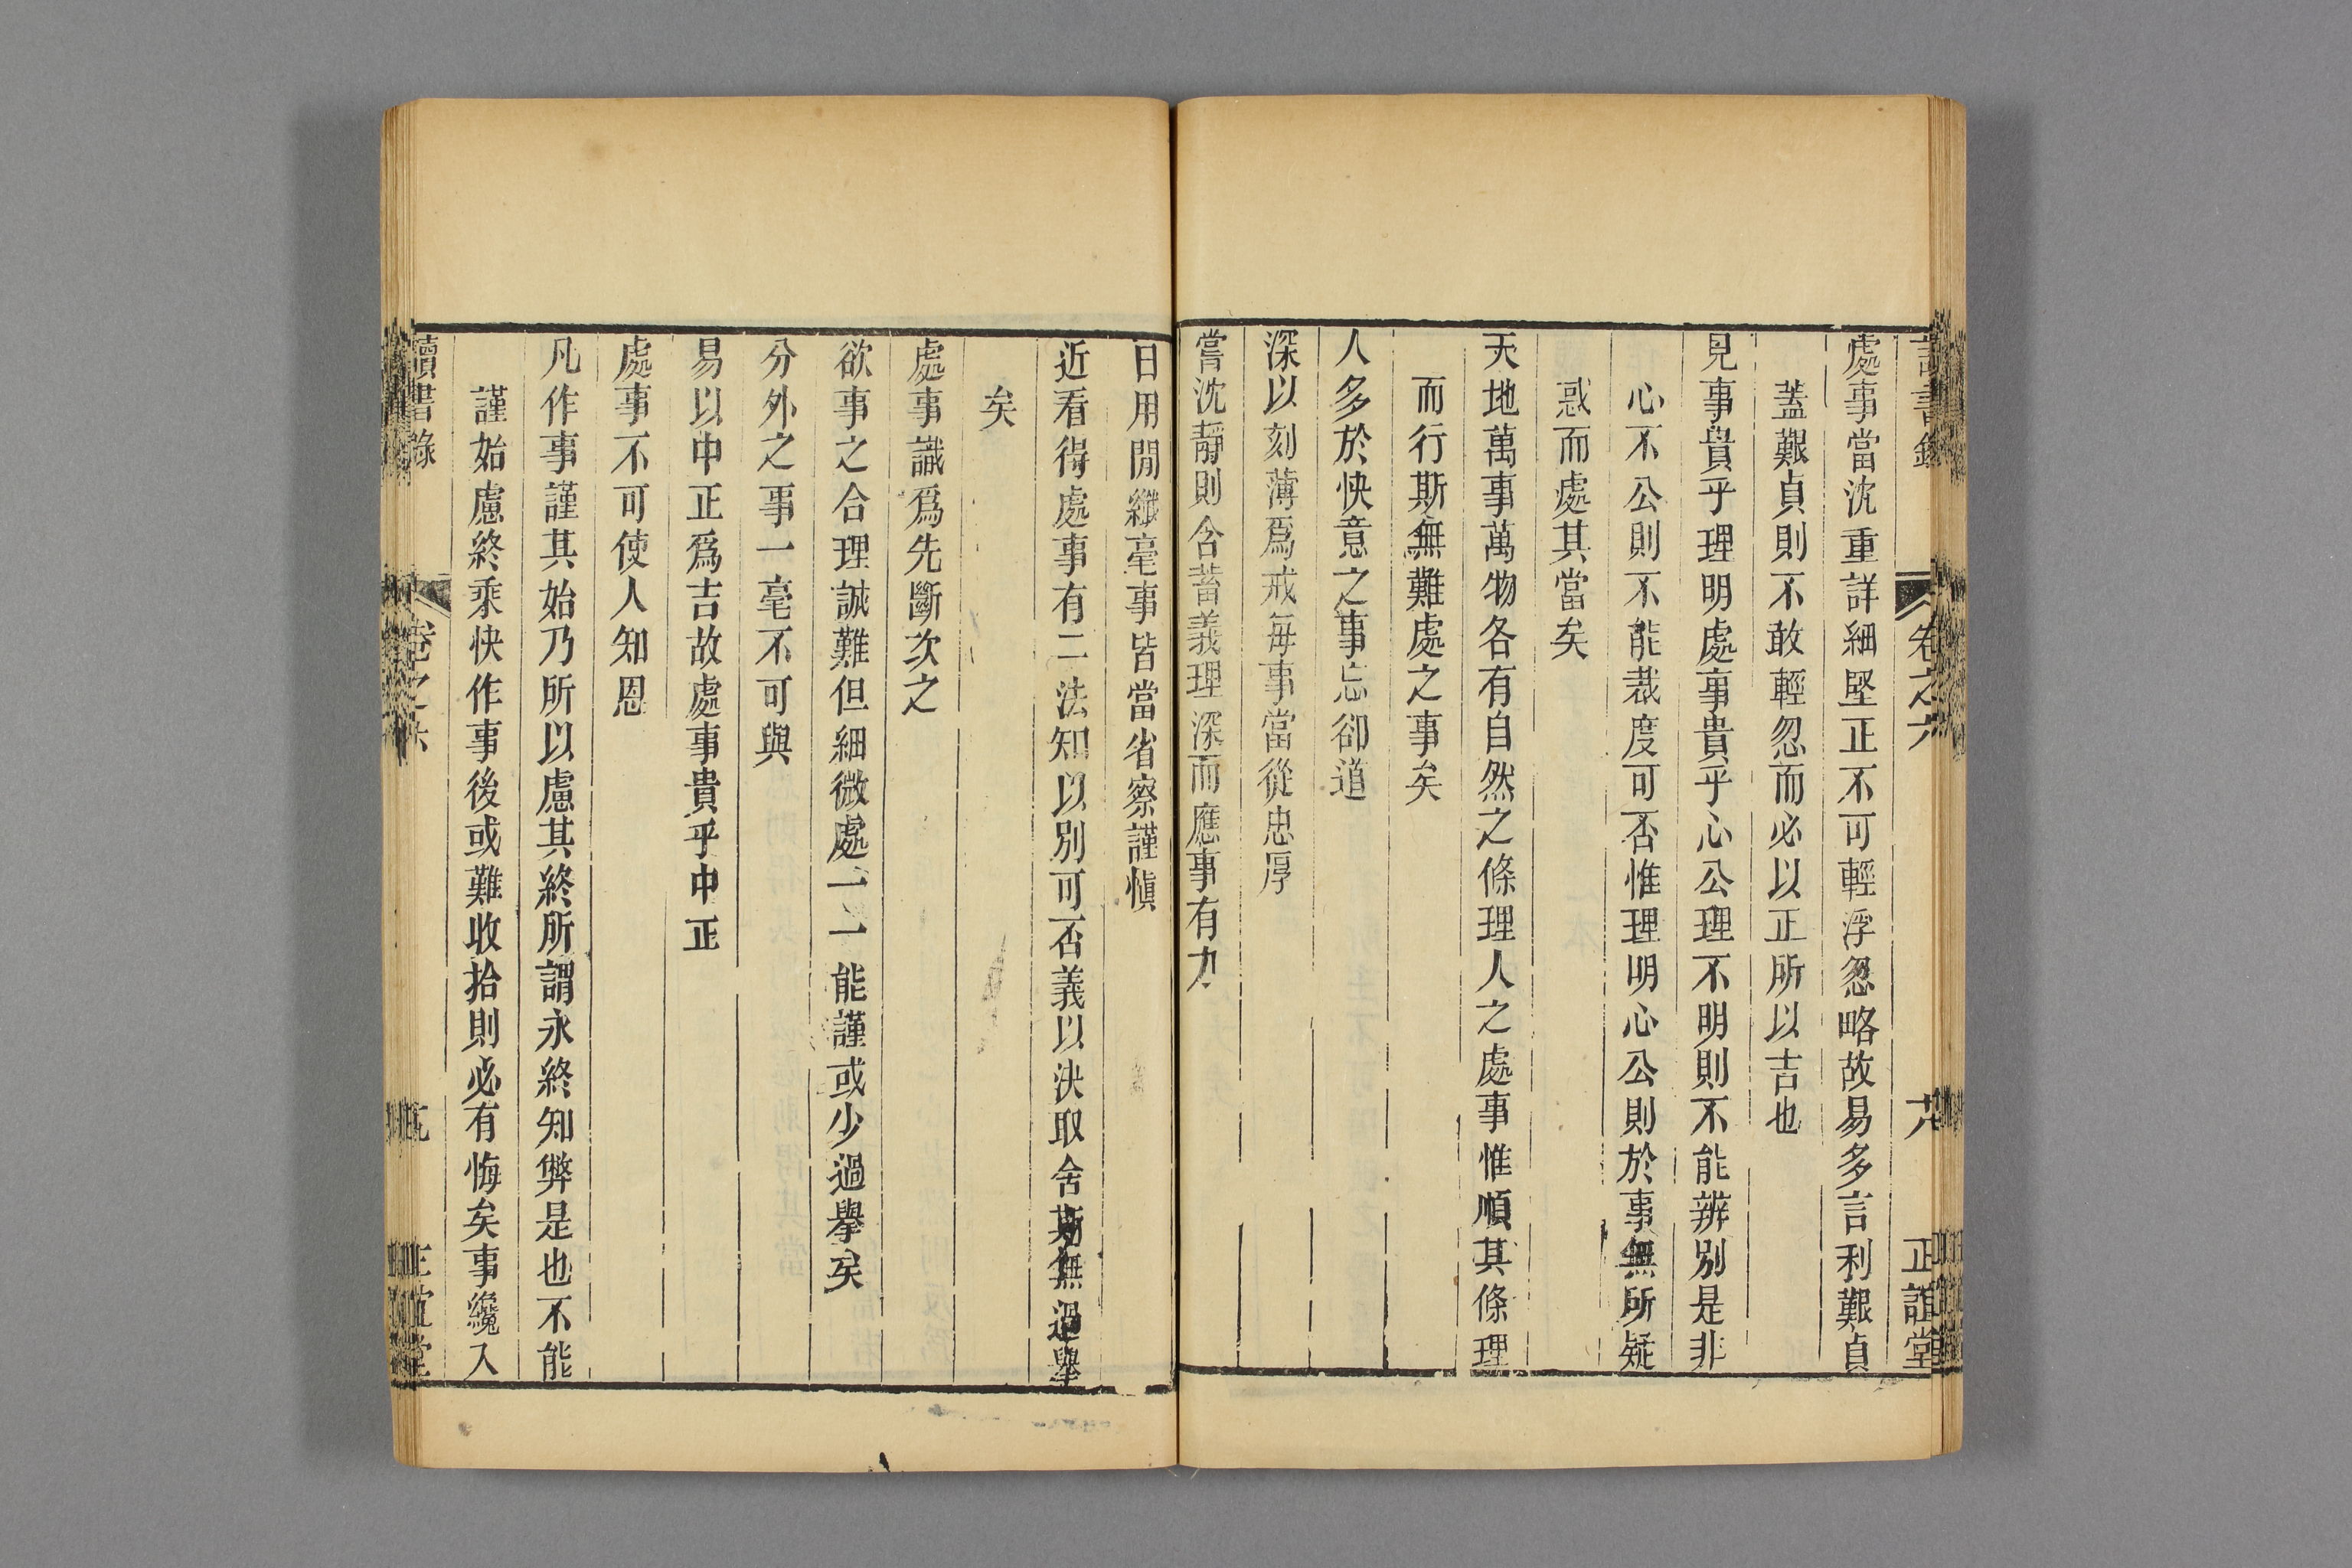 讀書錄 卷之六 十八 正誼堂
處事當沈重詳細堅正不可輕浮忽略故易多言利艱貞
蓋艱貞則不敢輕忽而必以正所以吉也
見事貴乎理明處事貴乎心公理不明則不能辨別是非
心不公則不能裁度可否惟理明心公則於事無所疑
惑而處其當矣
天地萬事萬物各有自然之條理人之處事惟順其條理
而行斯無難處之事矣
人多於快意之事忘卻道
深以刻薄爲戒每事當從忠厚
嘗沈靜則含蓄義理深而應事有力
日用閒纖毫事皆當省察謹愼
近看得處事有二法知以別可否義以決取舍斯無過舉
矣
處事識爲先斷次之
欲事之合理誠難但細微處一一能謹或少過舉矣
分外之事一毫不可與
易以中正爲吉故處事貴乎中正
處事不可使人知恩
凡作事謹其始乃所以慮其終所謂永終知弊是也不能
謹始慮終乘快作事後或難收拾則必有悔矣事纔入
讀書錄 卷之六 正誼堂